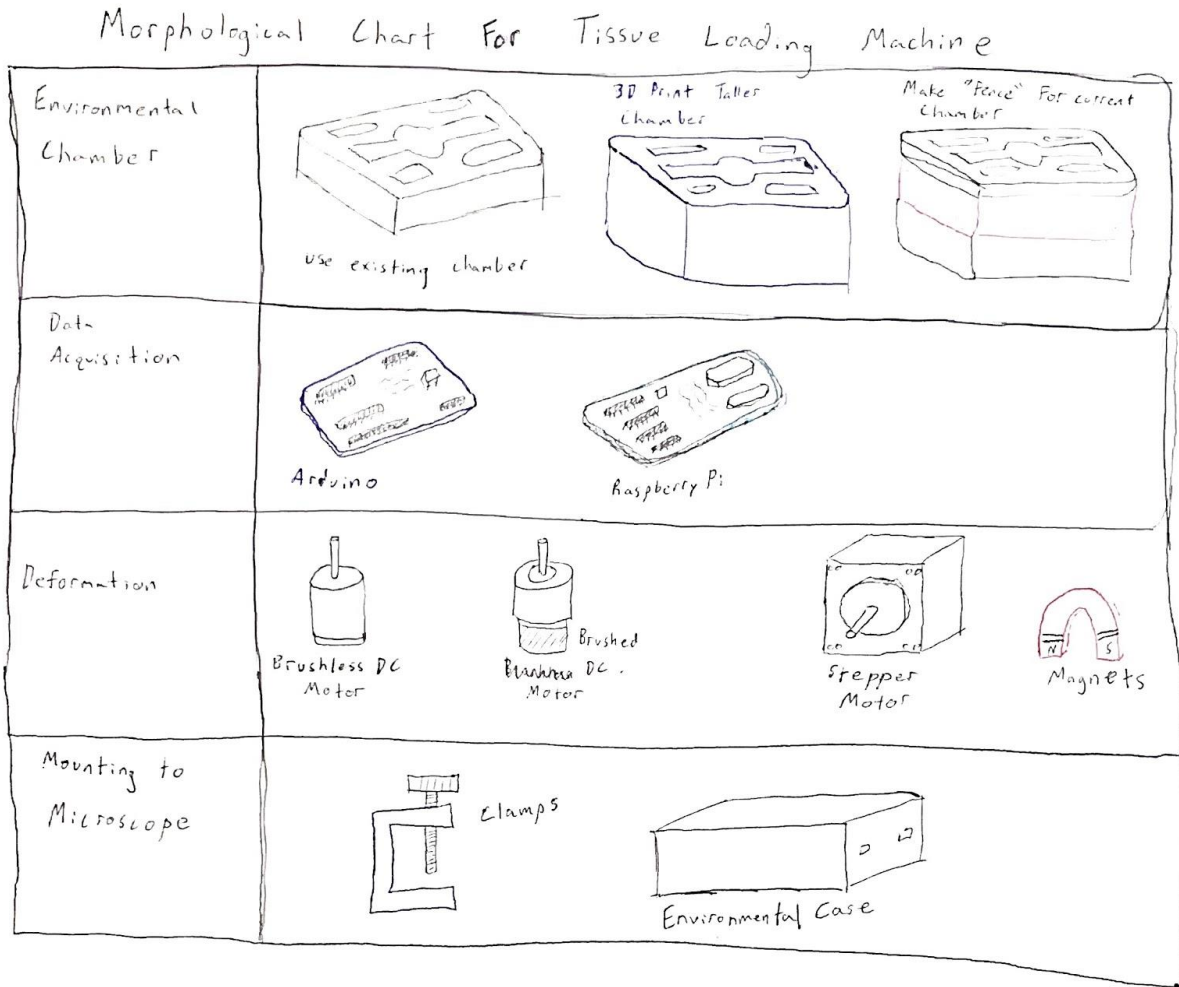 Morphological Chart For Tissue Loading Machine
Environmental
Chamber
use existing chamber
3D Print Taller
Chamber
Make "Fence" For current
Chamber
Data
Acquisition
Arduino
Raspberry Pi
Deformation
Brushless DC
Motor
Brushed
DC.
Motor
Stepper
Motor
N S
Magnets
Mounting to
Microscope
Clamps
Environmental Case